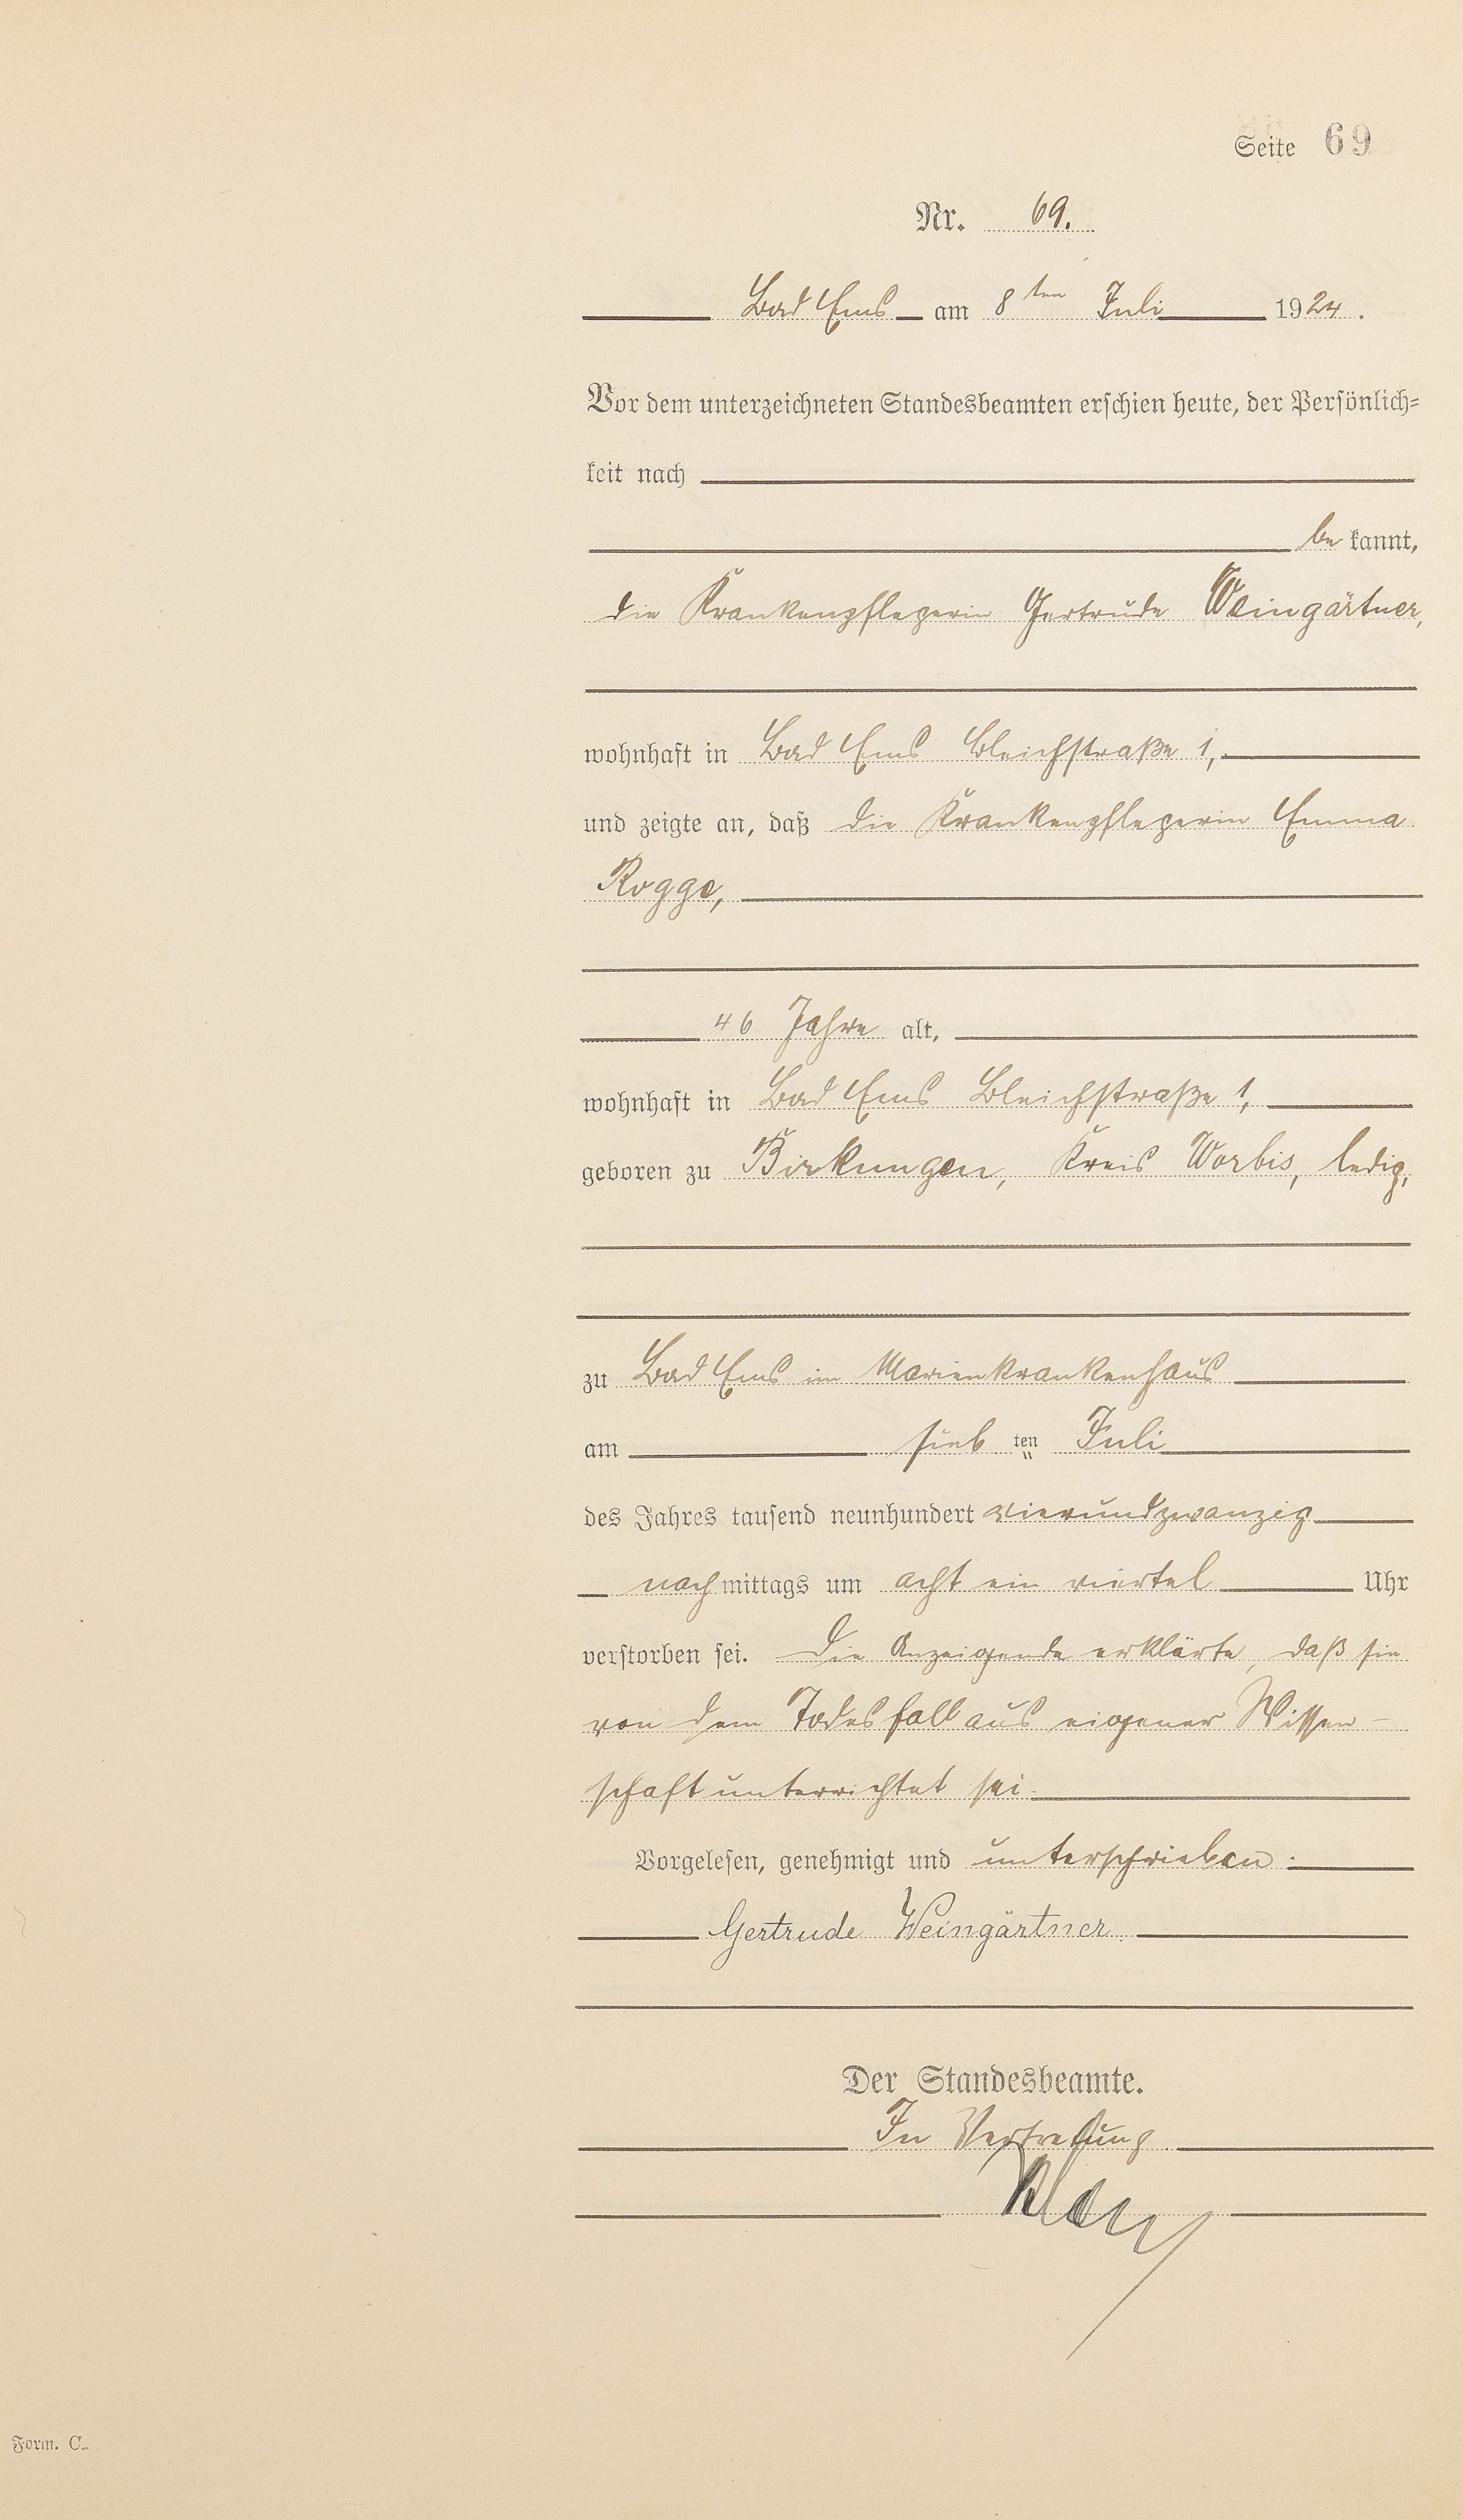 Seite 69
Nr. 69.
Bad Ems am 8ten Juli 1924.
Vor dem unterzeichneten Standesbeamten erschien heute, der Persönlich=
keit nach
be kannt,
die Krankenpflegerin Gertrude Weingärtner,
wohnhaft in Bad Ems Bleichstraße 1,
und zeigte an, daß die Krankenpflegerin Emma
Rogge,
46 Jahre alt,
wohnhaft in Bad Ems Bleichstraße 1,
geboren zu Birkungen, Kreis Worbis, ledig,
zu Bad Ems im Marienkrankenhaus
am sieb ten Juli
des Jahres tausend neunhundert vierundzwanzig
nach mittags um acht ein viertel Uhr
verstorben sei. Die Anzeigende erklärte, daß sie
von dem Todesfall aus eigener Wissen-
schaft unterrichtet sei.
Vorgelesen, genehmigt und unterschrieben.
Gertrude Weingärtner.
Der Standesbeamte.
In Vertretung
Form. C.